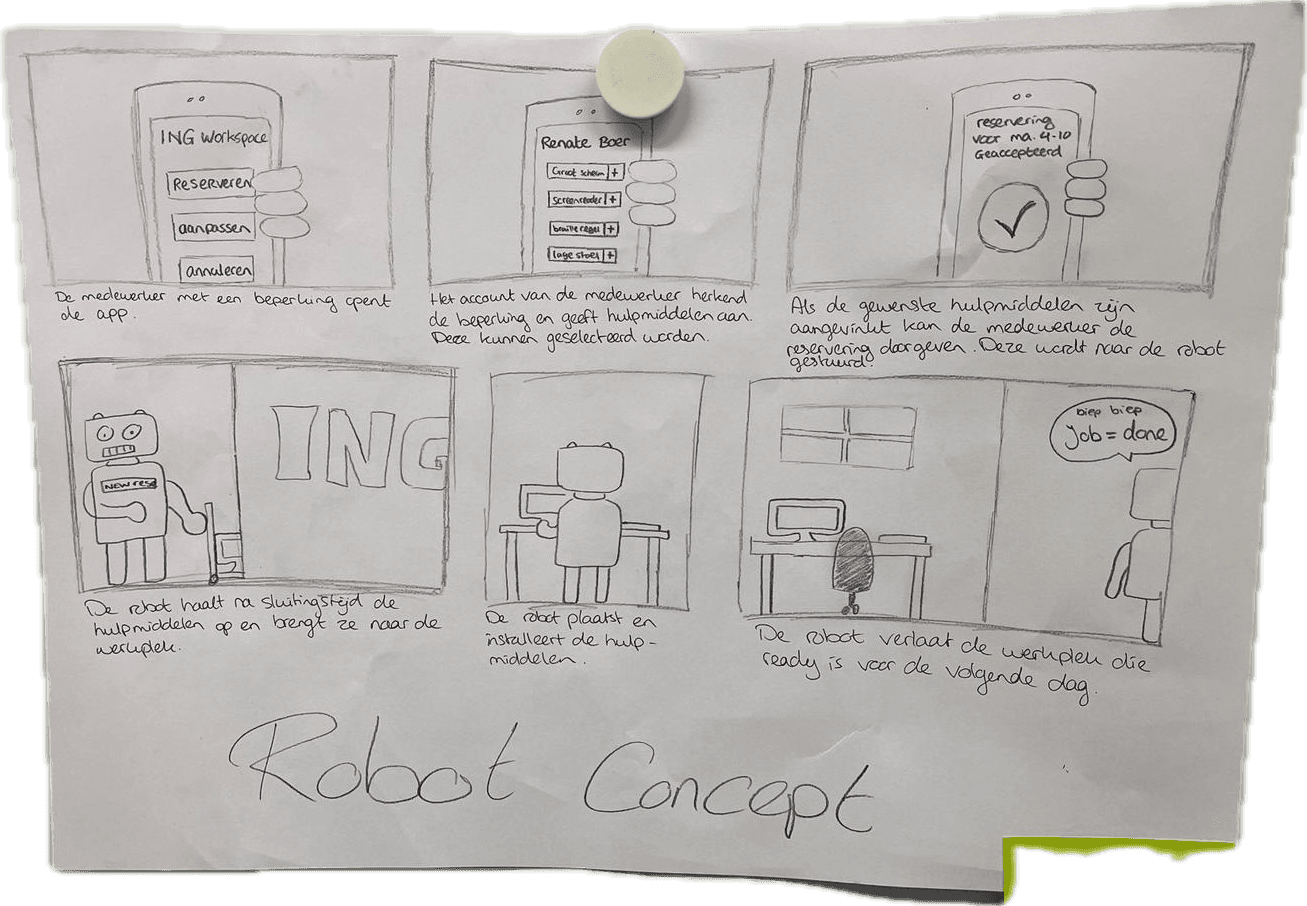 ING Workspace
Reserveren
aanpassen
annuleren
De medewerker met een beperking opent
de app.
Renate Boer
Groot scherm +
screenreader +
brailleregel +
lage stoel +
Het account van de medewerker herkend
de beperking en geeft hulpmiddelen aan.
Deze kunnen geselecteerd worden.
reservering
voor ma. 4-10
Geaccepteerd
Als de gewenste hulpmiddelen zijn
aangevinkt kan de medewerker de
reservering doorgeven. Deze wordt naar de robot
gestuurd.
NEW rese
ING
De robot haalt na sluitingstijd de
hulpmiddelen op en brengt ze naar de
werkplek.
De robot plaatst en
installeert de hulp-
middelen.
biep biep
job = done
De robot verlaat de werkplek die
ready is voor de volgende dag.
Robot Concept